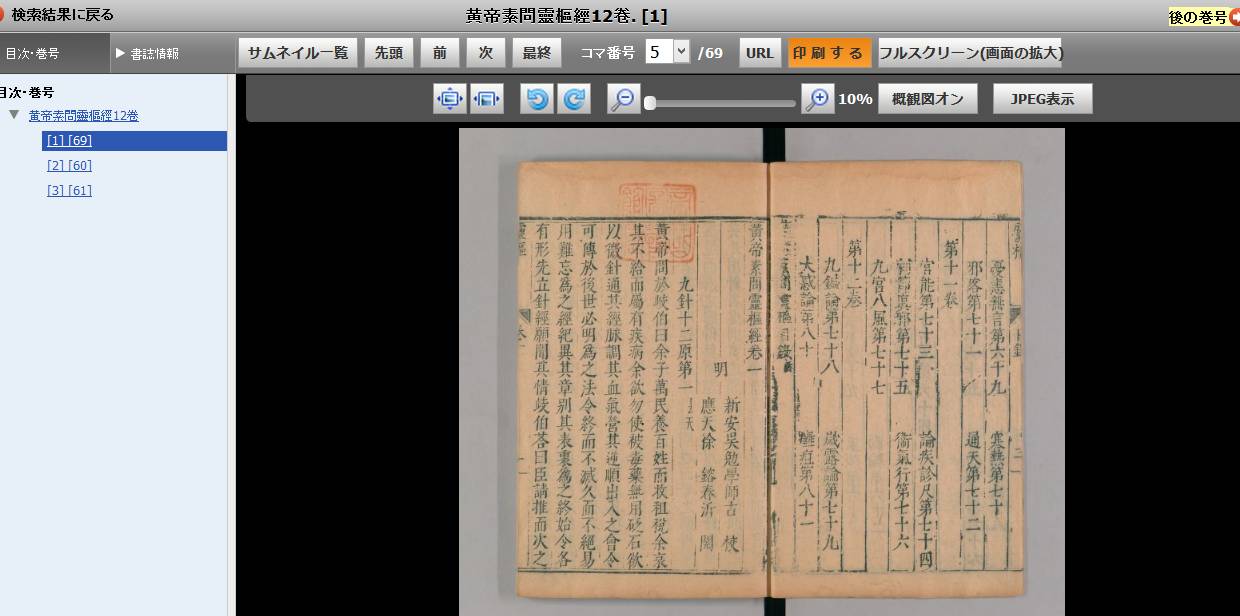 検索結果に戻る
黄帝素問靈樞經12巻. [1]
後の巻号
目次･巻号
▶ 書誌情報
サムネイル一覧
先頭
前
次
最終
コマ番号
5
/69
URL
印刷する
フルスクリーン(画面の拡大)
目次･巻号
黄帝素問靈樞經12巻
[1] [69]
[2] [60]
[3] [61]
10%
概観図オン
JPEG表示
憂恚無言第六十九 寒熱第七十
邪客第七十一 通天第七十二
第十一卷
官能第七十三 論疾診尺第七十四
刺節真邪第七十五 衞氣行第七十六
九宮八風第七十七
第十二卷
九鍼論第七十八 歲露論第七十九
大惑論第八十 癰疽第八十一
黃帝素問靈樞經卷一
明
新安吳勉學師古
應天徐 鎔春沂 閱
九針十二原第一
黃帝問於岐伯曰余子萬民養百姓而收租稅余哀
其不給而屬有疾病余欲勿使被毒藥無用砭石欲
以微針通其經脉調其血氣營其逆順出入之會令
可傳於後世必明爲之法令終而不滅久而不絕易
用難忘爲之經紀異其章別其表裏爲之終始令各
有形先立針經願聞其情歧伯荅曰臣請推而次之